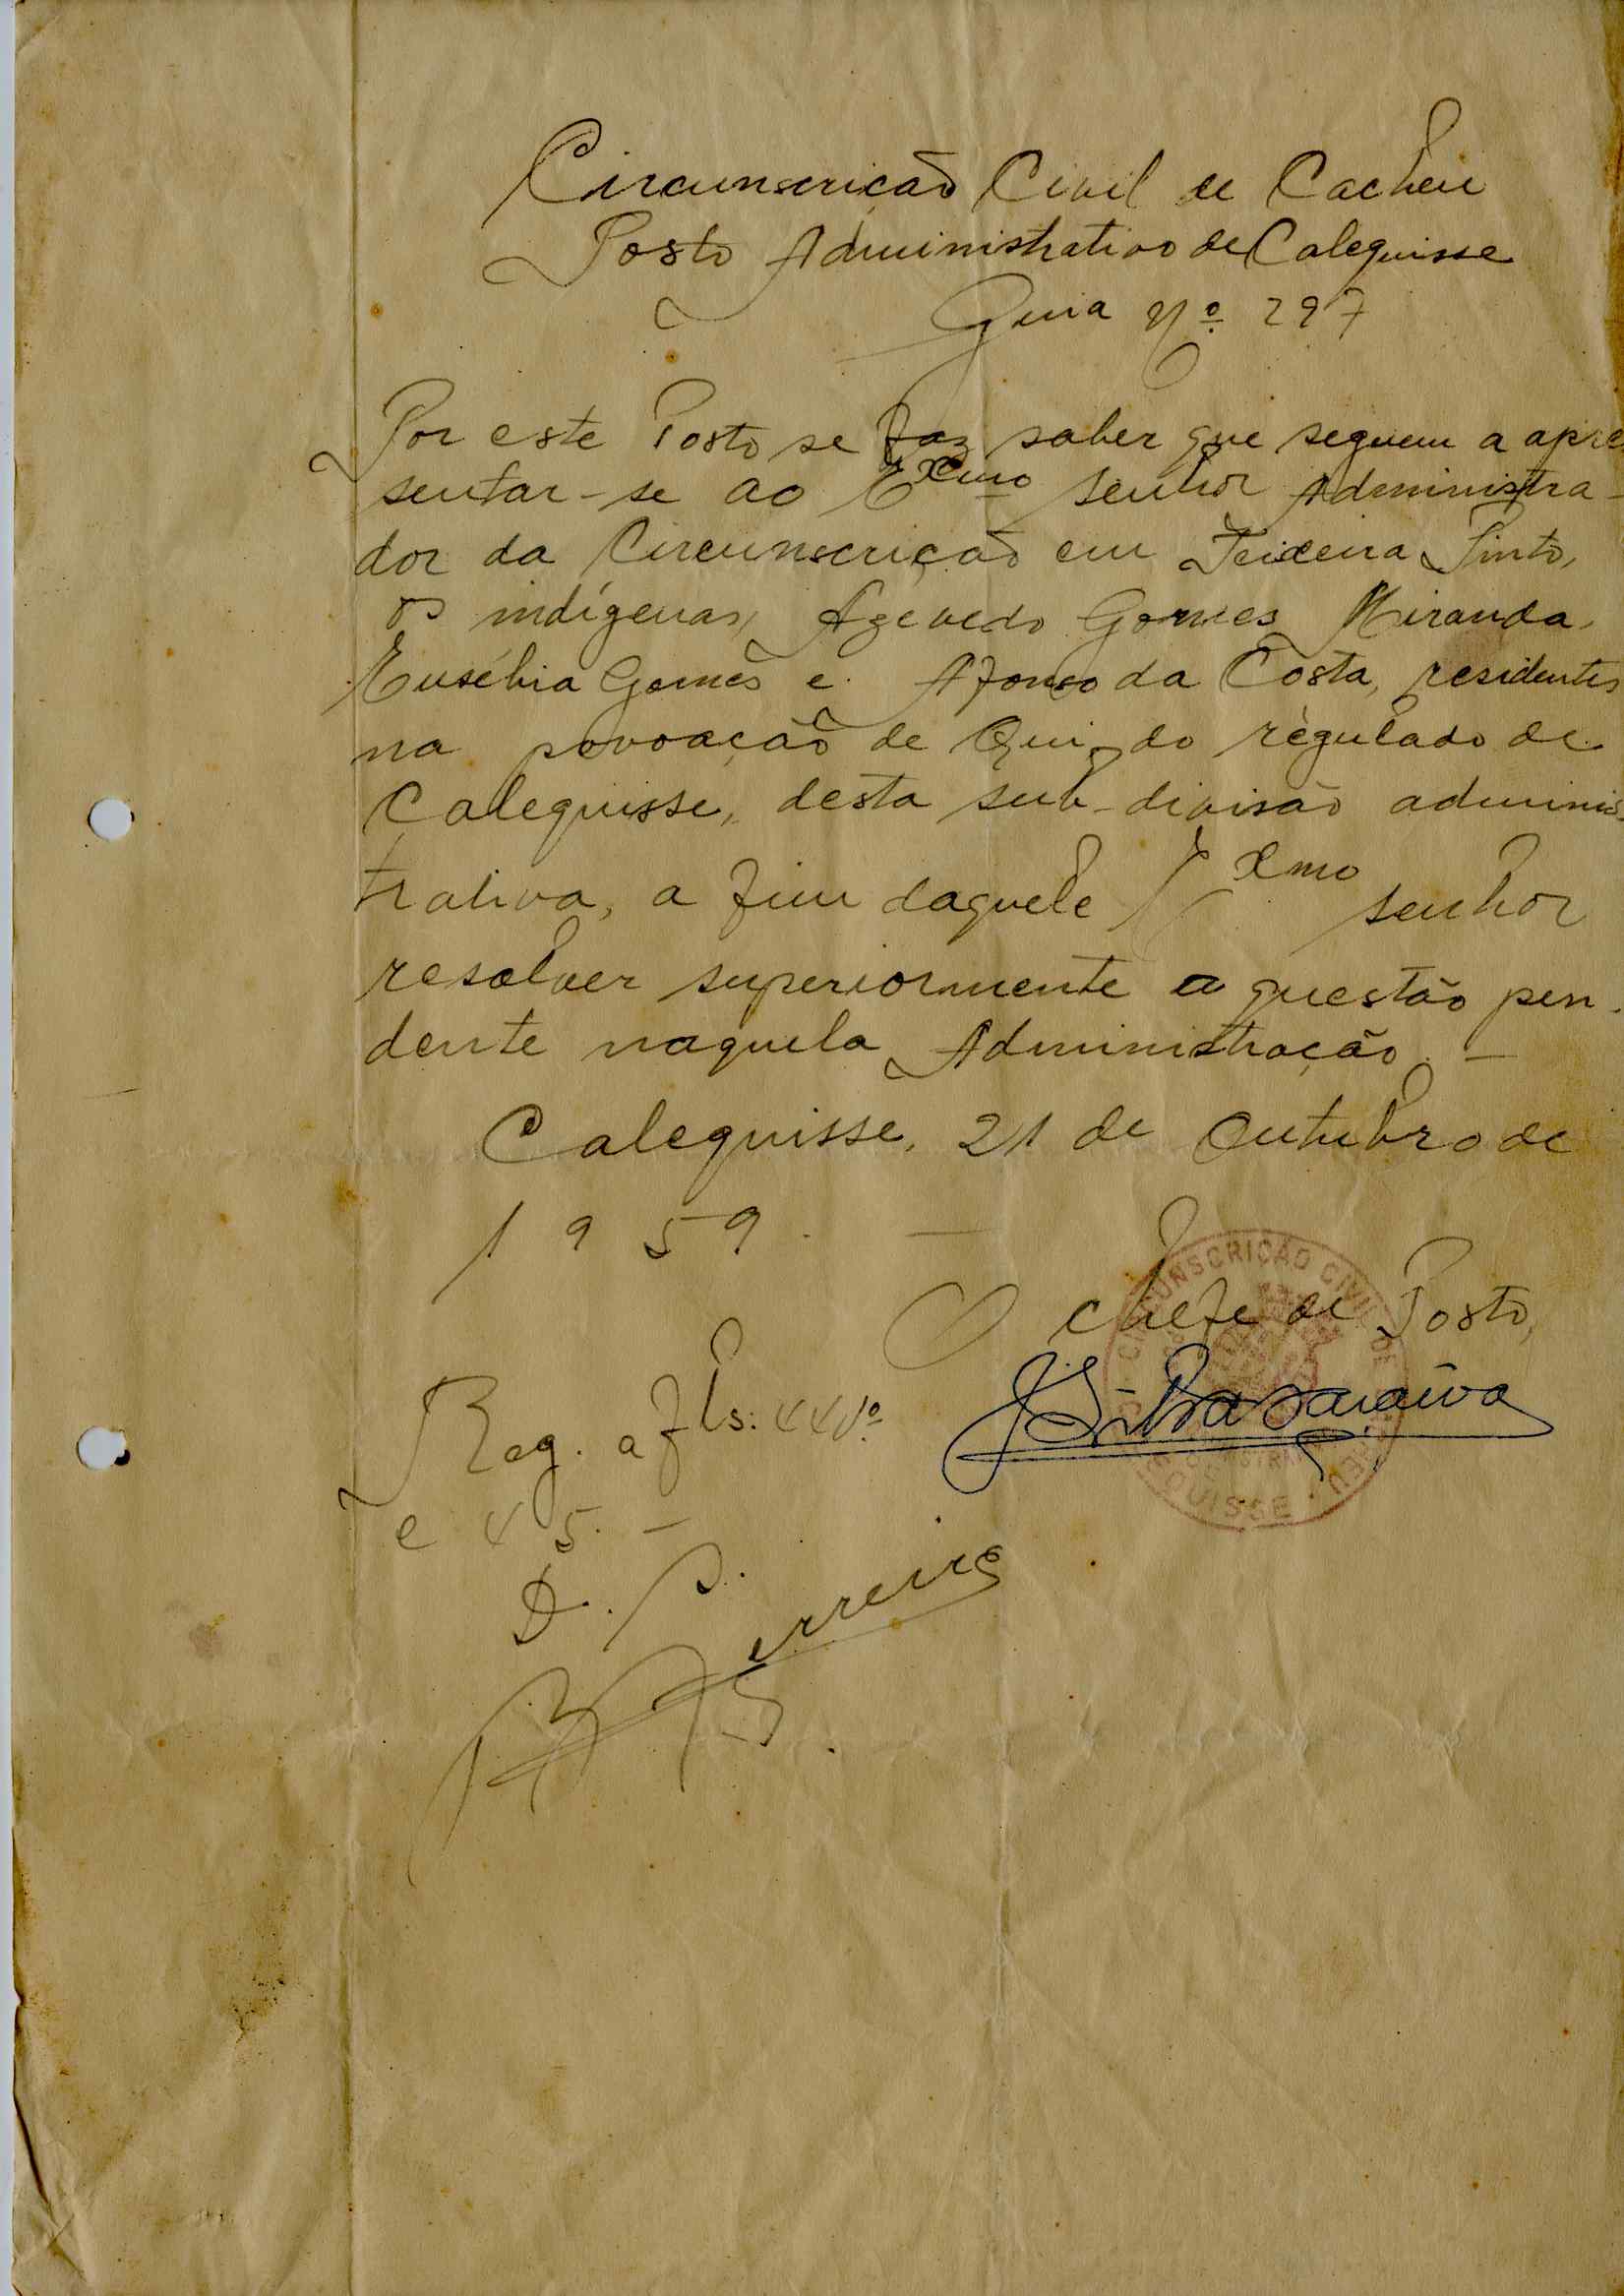 Circunscrição Civil de Cacheu
Posto Administrativo de Calequisse
Guia Nº 297
Por este Posto se faz saber que seguem a apre
sentar-se ao Exmo senhor Administra-
dor da Circunscrição em Teixeira Pinto,
os indígenas, Azevedo Gomes Miranda,
Eusébia Gomes e Afonso da Costa, residentes
na povoação de Qui, do régulado de
Calequisse, desta sub-divisão adminis-
trativa, a fim daquele Exmo senhor
resolver superiormente a questão pen-
dente naquela Administração. —
Calequisse, 21 de Outubro de
1959. —
O chefe de Posto,
Reg. a fls: 44vº
e 45. —
CIRCUNSCRIÇÃO CIVIL DE